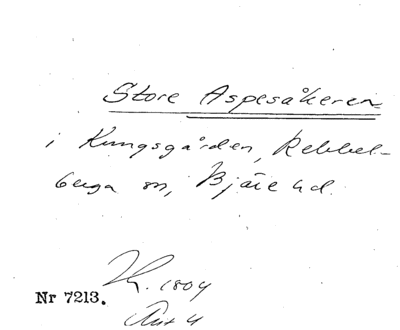 Store Aspesåkeren
i Kungsgården, Rebbel-
berga sn, Bjäre hd.
1804
Nr 7213.